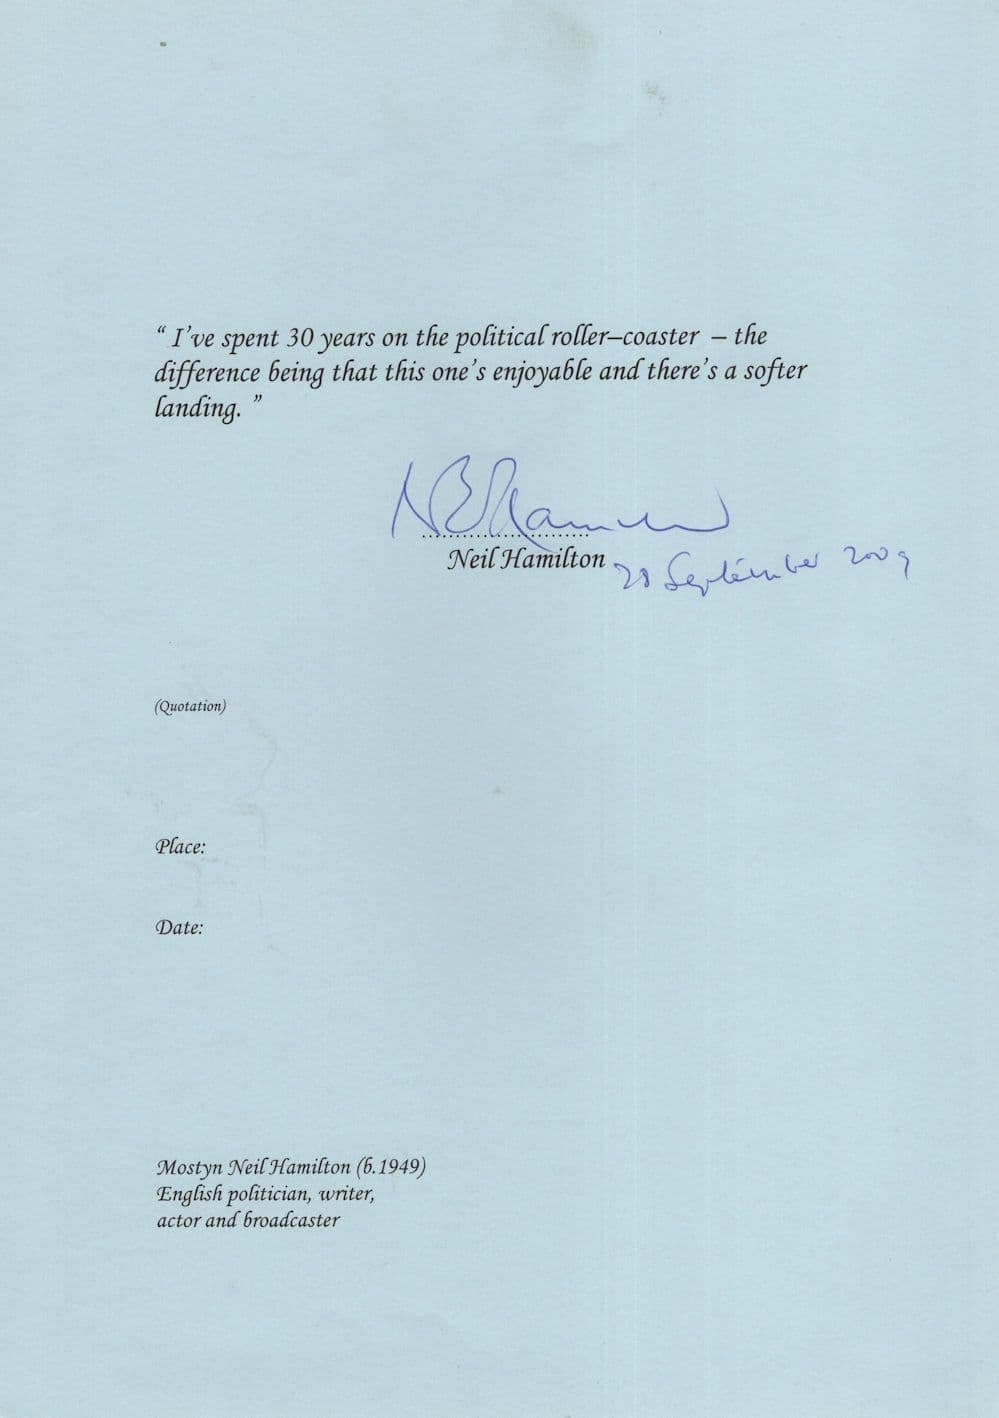 “ I’ve spent 30 years on the political roller–coaster – the
difference being that this one’s enjoyable and there’s a softer
landing. ”
NHamilton
Neil Hamilton
28 September 2009
(Quotation)
Place:
Date:
Mostyn Neil Hamilton (b.1949)
English politician, writer,
actor and broadcaster